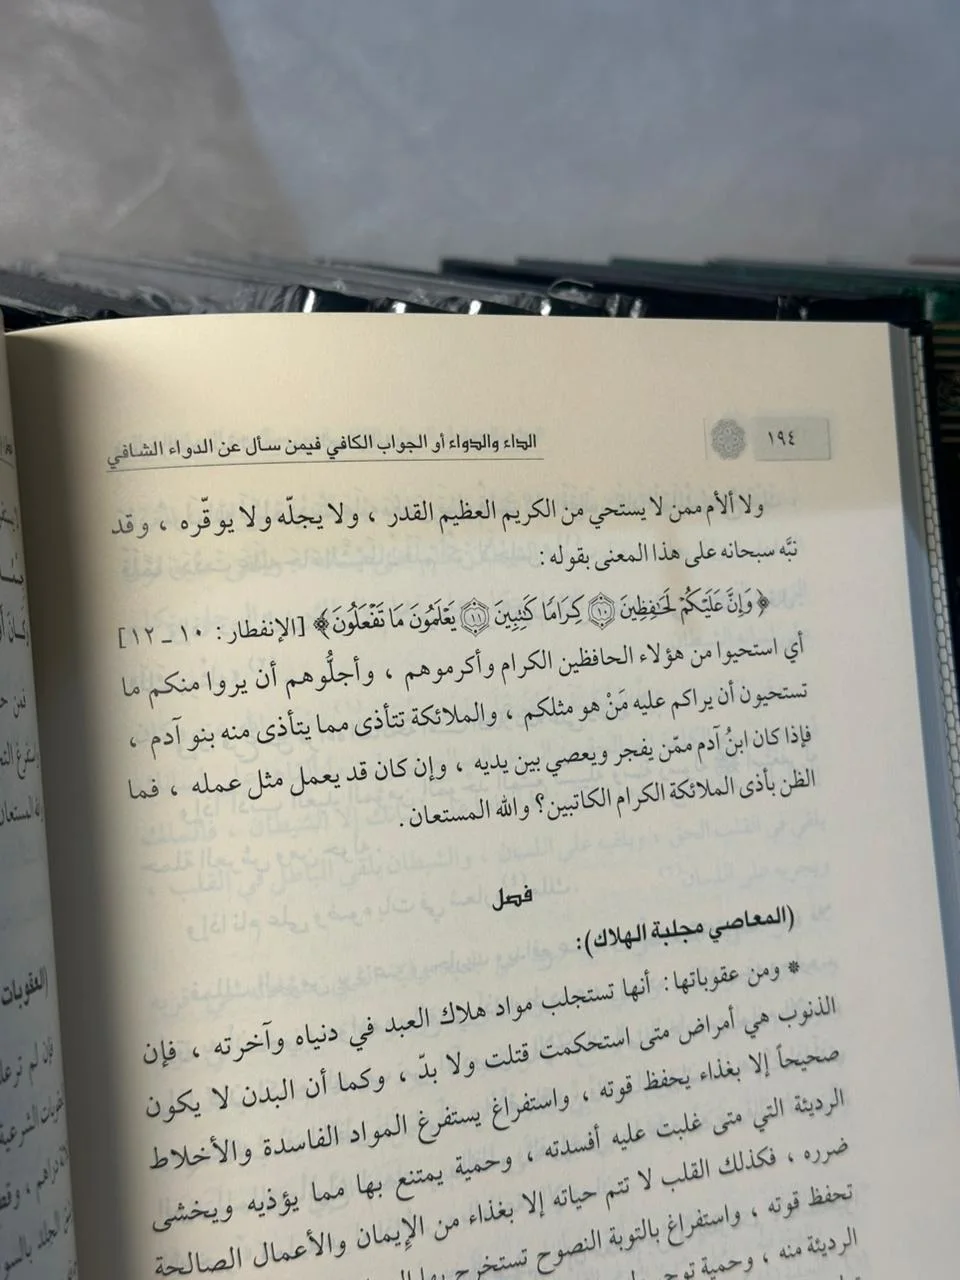 ١٩٤
الداء والدواء أو الجواب الكافي فيمن سأل عن الدواء الشافي
ولا ألأم ممن لا يستحي من الكريم العظيم القدر ، ولا يجلّه ولا يوقّره ، وقد
نبَّه سبحانه على هذا المعنى بقوله :
﴿وَإِنَّ عَلَيْكُمْ لَحَٰفِظِينَ ١٠ كِرَامًا كَٰتِبِينَ ١١ يَعْلَمُونَ مَا تَفْعَلُونَ﴾ [الإنفطار : ١٠ ـ ١٢]
أي استحيوا من هؤلاء الحافظين الكرام وأكرموهم ، وأجلُّوهم أن يروا منكم ما
تستحيون أن يراكم عليه مَنْ هو مثلكم ، والملائكة تتأذى مما يتأذى منه بنو آدم ،
فإذا كان ابنُ آدم ممّن يفجر ويعصي بين يديه ، وإن كان قد يعمل مثل عمله ، فما
الظن بأذى الملائكة الكرام الكاتبين؟ والله المستعان .
فصل
(المعاصي مجلبة الهلاك):
* ومن عقوباتها : أنها تستجلب مواد هلاك العبد في دنياه وآخرته ، فإن
الذنوب هي أمراض متى استحكمت قتلت ولا بدّ ، وكما أن البدن لا يكون
صحيحاً إلا بغذاء يحفظ قوته ، واستفراغ يستفرغ المواد الفاسدة والأخلاط
الرديئة التي متى غلبت عليه أفسدته ، وحمية يمتنع بها مما يؤذيه ويخشى
ضرره ، فكذلك القلب لا تتم حياته إلا بغذاء من الإيمان والأعمال الصالحة
تحفظ قوته ، واستفراغ بالتوبة النصوح تستخرج بها
الرديئة منه ، وحمية